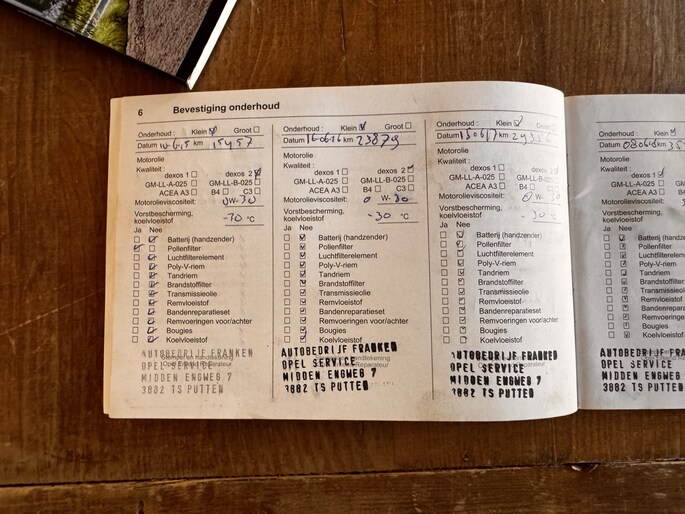 6 Bevestiging onderhoud
Onderhoud : Klein Groot
Datum 10-6-15 km 15457
Motorolie
Kwaliteit :
dexos 1 dexos 2
GM-LL-A-025 GM-LL-B-025
ACEA A3 B4 C3
Motorolieviscositeit: 0W-30
Vorstbescherming,
koelvloeistof °C
Ja Nee
Batterij (handzender)
Pollenfilter
Luchtfilterelement
Poly-V-riem
Tandriem
Brandstoffilter
Transmissieolie
Remvloeistof
Bandenreparatieset
Remvoeringen voor/achter
Bougies
Koelvloeistof
AUTOBEDRIJF FRANKEN
OPEL SERVICE
MIDDEN ENGWEG 7
3882 TS PUTTEN
Onderhoud : Klein Groot
Datum 16-06-16 km 23879
Motorolie
Kwaliteit :
dexos 1 dexos 2
GM-LL-A-025 GM-LL-B-025
ACEA A3 B4 C3
Motorolieviscositeit: 0 W-30
Vorstbescherming,
koelvloeistof -30 °C
Ja Nee
Batterij (handzender)
Pollenfilter
Luchtfilterelement
Poly-V-riem
Tandriem
Brandstoffilter
Transmissieolie
Remvloeistof
Bandenreparatieset
Remvoeringen voor/achter
Bougies
Koelvloeistof
AUTOBEDRIJF FRANKEN
OPEL SERVICE
MIDDEN ENGWEG 7
3882 TS PUTTEN
Onderhoud : Klein Groot
Datum 150617 km
Motorolie
Kwaliteit :
dexos 1 dexos 2
GM-LL-A-025 GM-LL-B-025
ACEA A3 B4 C3
Motorolieviscositeit: 0 W-30
Vorstbescherming,
koelvloeistof -30 °C
Ja Nee
Batterij (handzender)
Pollenfilter
Luchtfilterelement
Poly-V-riem
Tandriem
Brandstoffilter
Transmissieolie
Remvloeistof
Bandenreparatieset
Remvoeringen voor/achter
Bougies
Koelvloeistof
AUTOBEDRIJF FRANKEN
OPEL SERVICE
MIDDEN ENGWEG 7
3882 TS PUTTEN
Onderhoud : Klein
Datum 080618 km
Motorolie
Kwaliteit :
dexos 1
GM-LL-A-025
ACEA A3
Motorolieviscositeit:
Vorstbescherming,
koelvloeistof
Ja Nee
AUTOBEDRIJF
OPEL SERVICE
MIDDEN ENGWEG
3882 TS PUTTE